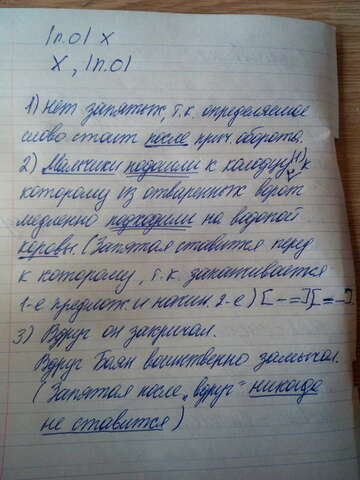 |п.о| х
х, |п.о|
1) нет запятых, т.к. определяемое
слово стоит после прич. оборота.
2) Мальчики подошли к колодцу(1), к
которому из отваренных ворот
медленно подходили на водопой
коровы. (Запятая ставится перед
к которому, т.к. заканчивается
1-е предлож. и начин. 2-е) [- =][= -].
3) Вдруг он закричал.
Вдруг Баян воинственно замычал.
(Запятая после „вдруг" никогда
не ставится)